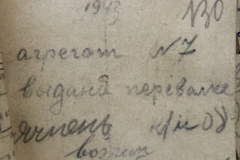 1943 130
агрегат №7
выдана перевалке
ячмень к/м 08
возчик